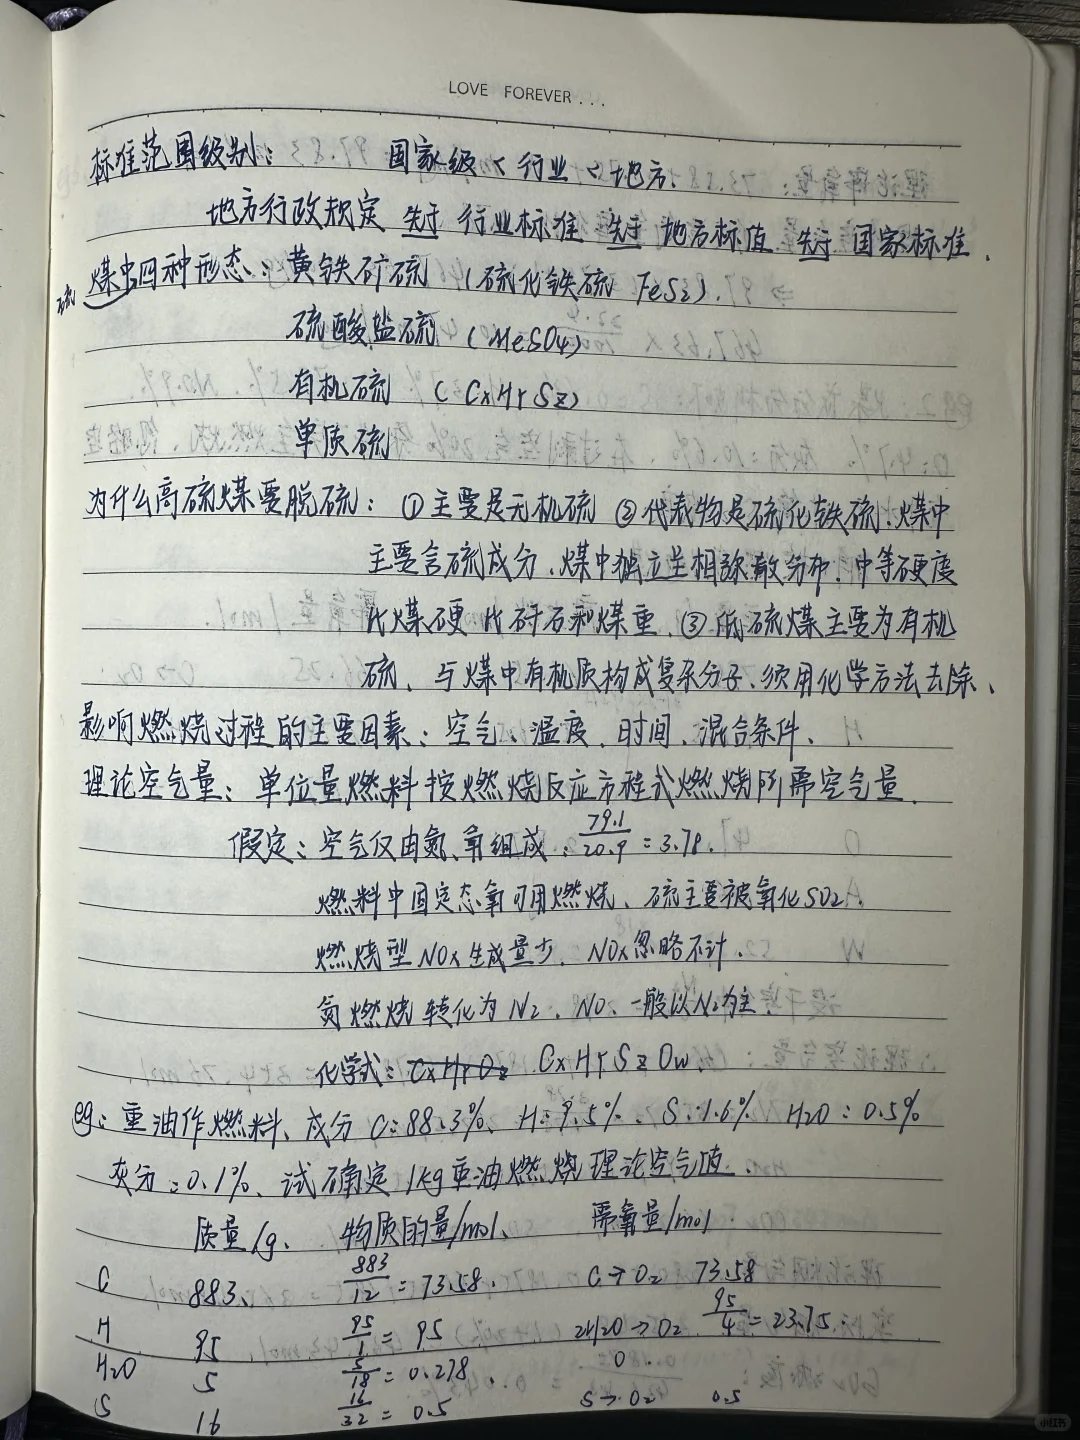 LOVE FOREVER...
标准范围级别： 国家级 < 行业 < 地方.
地方行政规定 先于 行业标准 先于 地方标值 先于 国家标准.
硫
煤中四种形态：黄铁矿硫（硫化铁硫 FeS2）.
硫酸盐硫 （MeSO4）
有机硫 （CxHYSz）
单质硫
为什么高硫煤要脱硫：①主要是无机硫 ②代表物是硫化铁硫.煤中
主要含硫成分.煤中独立呈相弥散分布.中等硬度
比煤硬 比矸石和煤重.③低硫煤主要为有机
硫、与煤中有机质构成复杂分子.须用化学方法去除、
影响燃烧过程的主要因素：空气、温度、时间、混合条件、
理论空气量：单位量燃料按燃烧反应方程式燃烧所需空气量.
假定：空气仅由氮、氧组成：79.1/20.9 = 3.78.
燃料中固定态氧可用燃烧、硫主要被氧化SO2.
燃烧型NOx生成量少、NOx忽略不计.
氮燃烧转化为N2、NO、一般以N2为主.
化学式：CxHYOz CxHYSzOw
eg：重油作燃料、成分 C:88.3%、H:9.5%、S:1.6% H2O:0.5%
灰分:0.1%、试确定1kg重油燃烧理论空气值.
质量/g、 物质的量/mol、 需氧量/mol
C 883、 883/12 = 73.58. C→O2 73.58
H 95 95/1 = 95 2H2O→O2 95/4 = 23.75
H2O 5 5/18 = 0.278. 0
S 16 16/32 = 0.5 S→O2 0.5
小红书